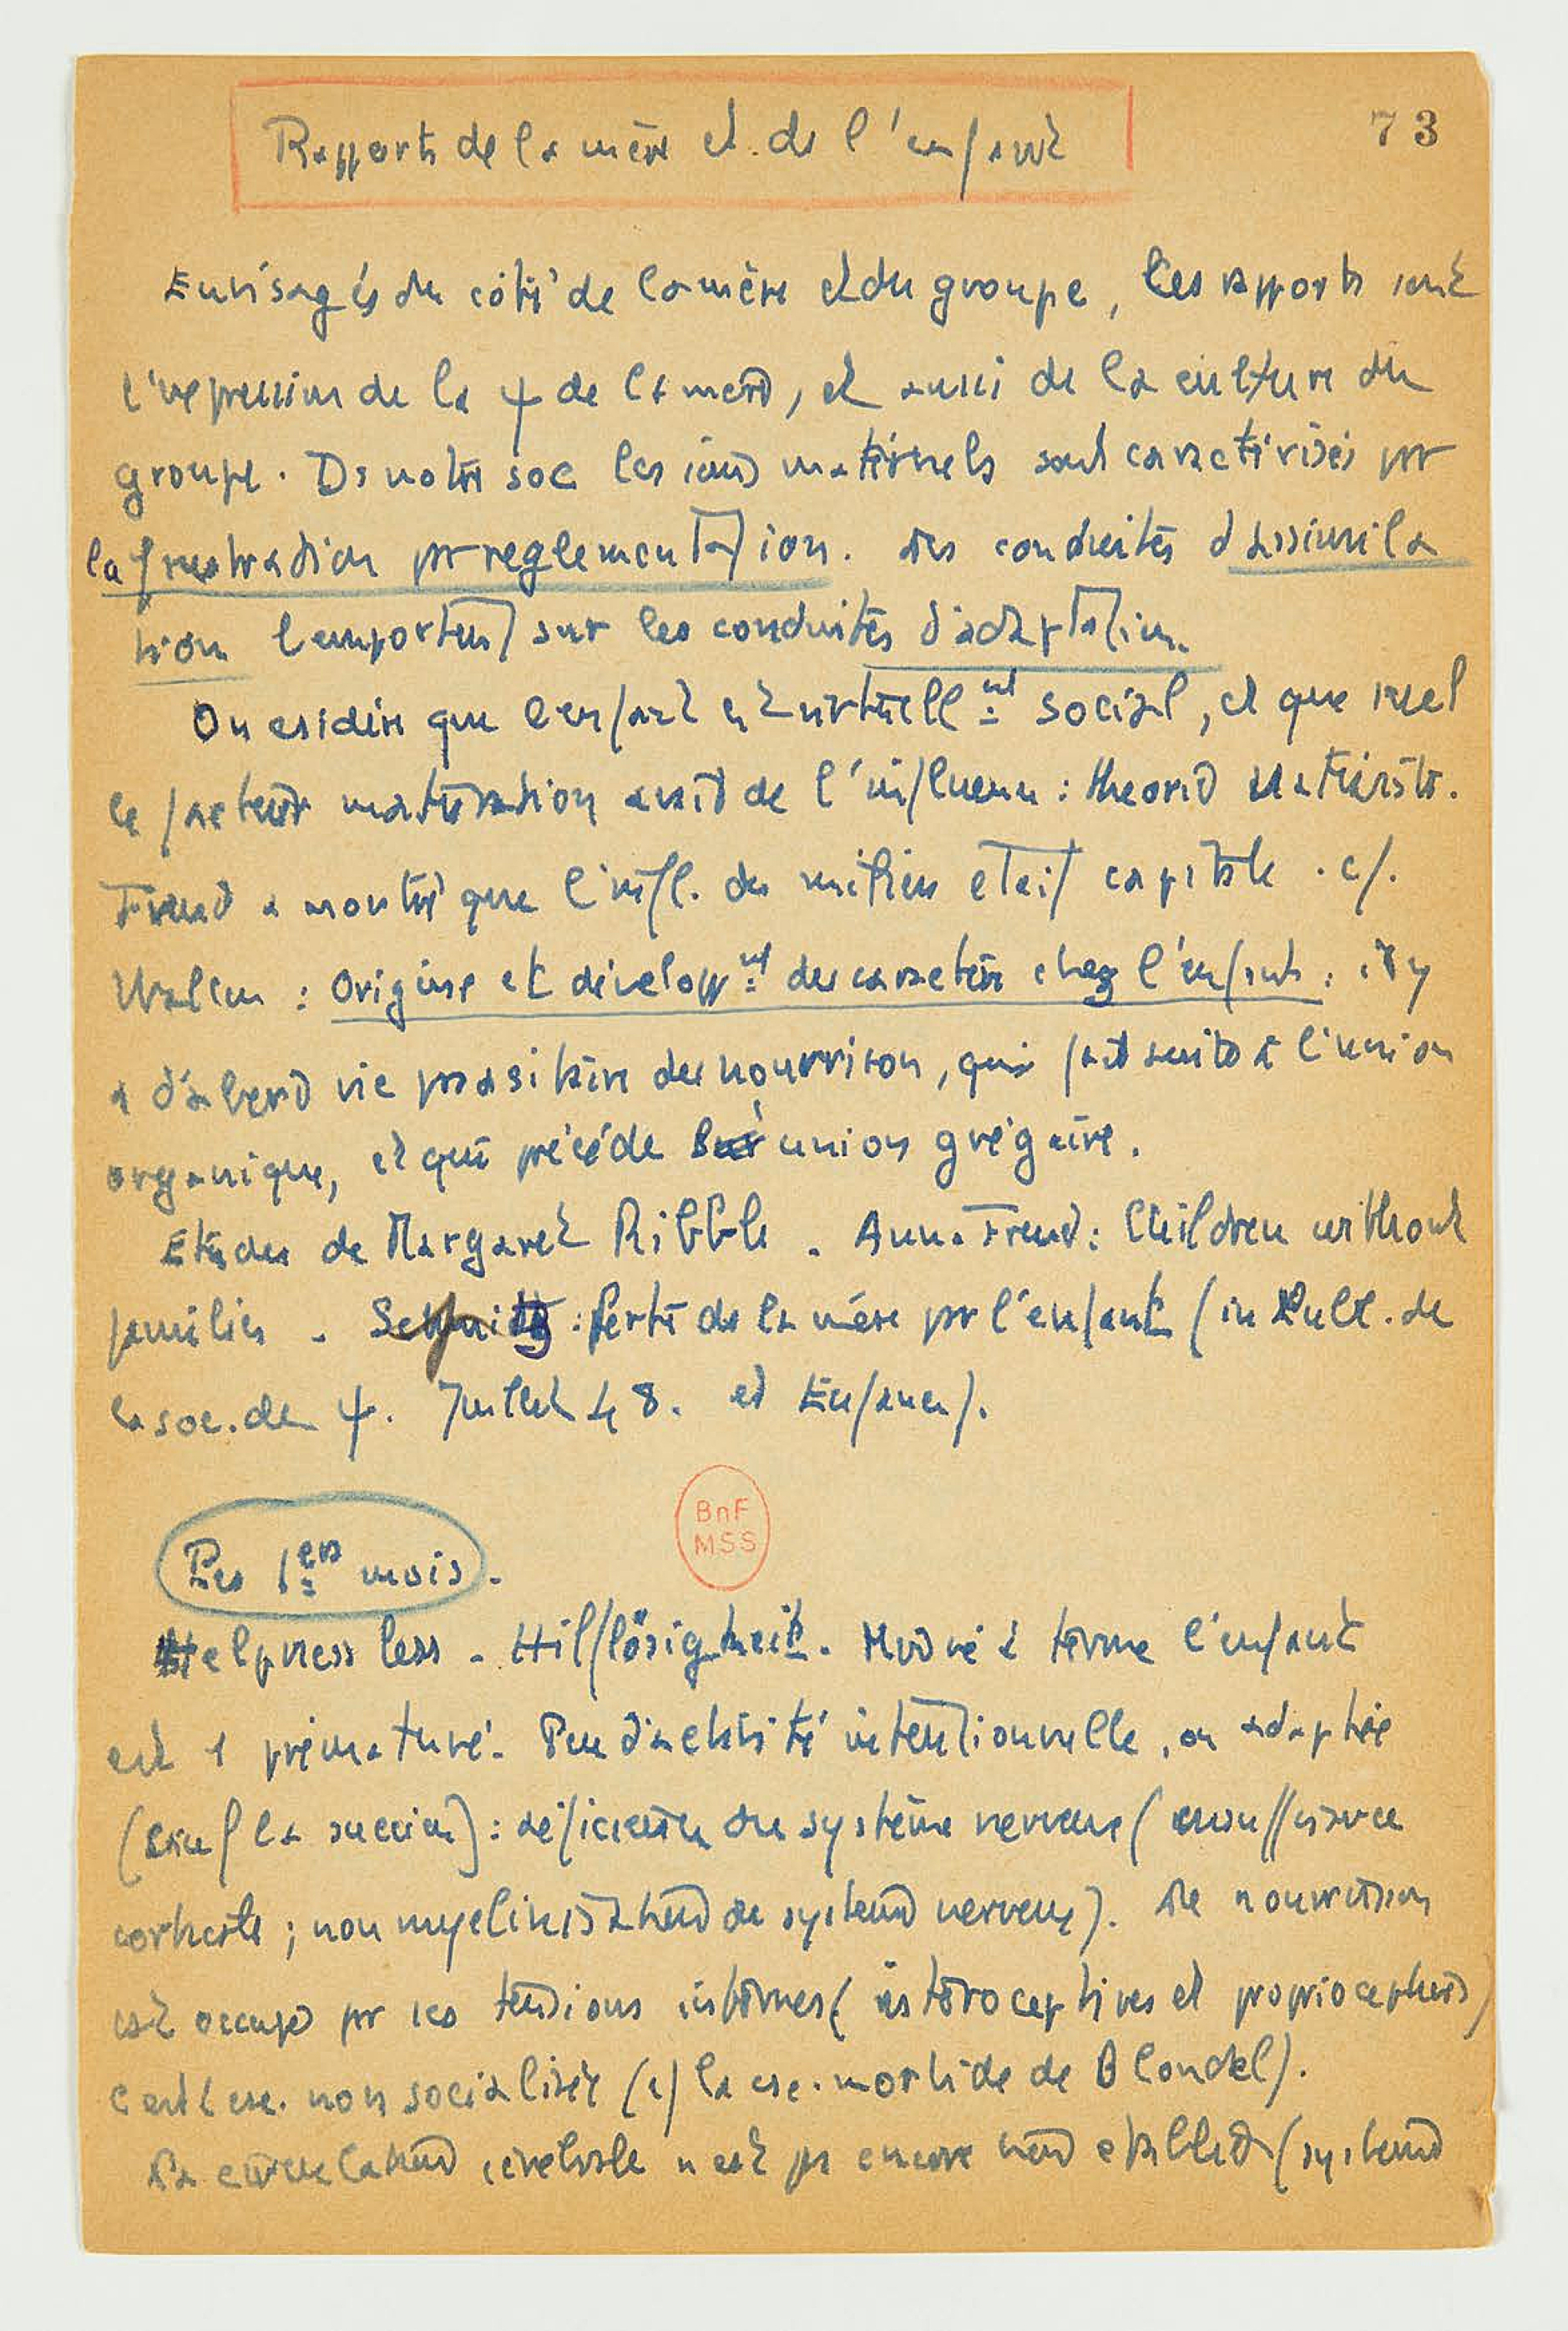 73
Rapports de la mère et de l'enfant
Envisagés du côté de la mère et du groupe, les rapports sont
l'expression de la ψ de la mère, et aussi de la culture du
groupe. Ds notre soc les soins maternels sont caractérisés pr
la frustration pr reglementation. Les conduites d'assimila
tion l'emportent sur les conduites d'adaptation.
On considère que l'enfant est virtuellnt social, et que seul
le facteur maturation avait de l'influence : theorie
Freud a montré que l'infl. du milieu etait capitale . cf.
Wallon : Origine et developpnt du caractère chez l'enfant : il y
a d'abord vie parasitaire du nourrisson, qui fait suite à l'union
organique, et qui précède union grégaire.
Etudes de Margaret Ribble . Anna Freud : Children without
families - : Perte de la mère pr l'enfant (in Bull. de
la soc. de ψ. Juillet 48. et Enfance).
BnF
MSS
Les 1ers mois.
Helpnessless - Hilflösigkeit. né à terme l'enfant
est 1 prématuré. Peu d'activité intentionnelle, ou adaptée
(sauf la succion) : déficience du système nerveux (insuffisance
corticale ; non myelinisation du système nerveux). Le nourrisson
est occupé pr ses tensions internes (interoceptives et proprioceptives)
C'est 1 csc. non socialisée (cf la csc. morbide de Blondel).
La circulation cérébrale n'est ps encore bien établie (système